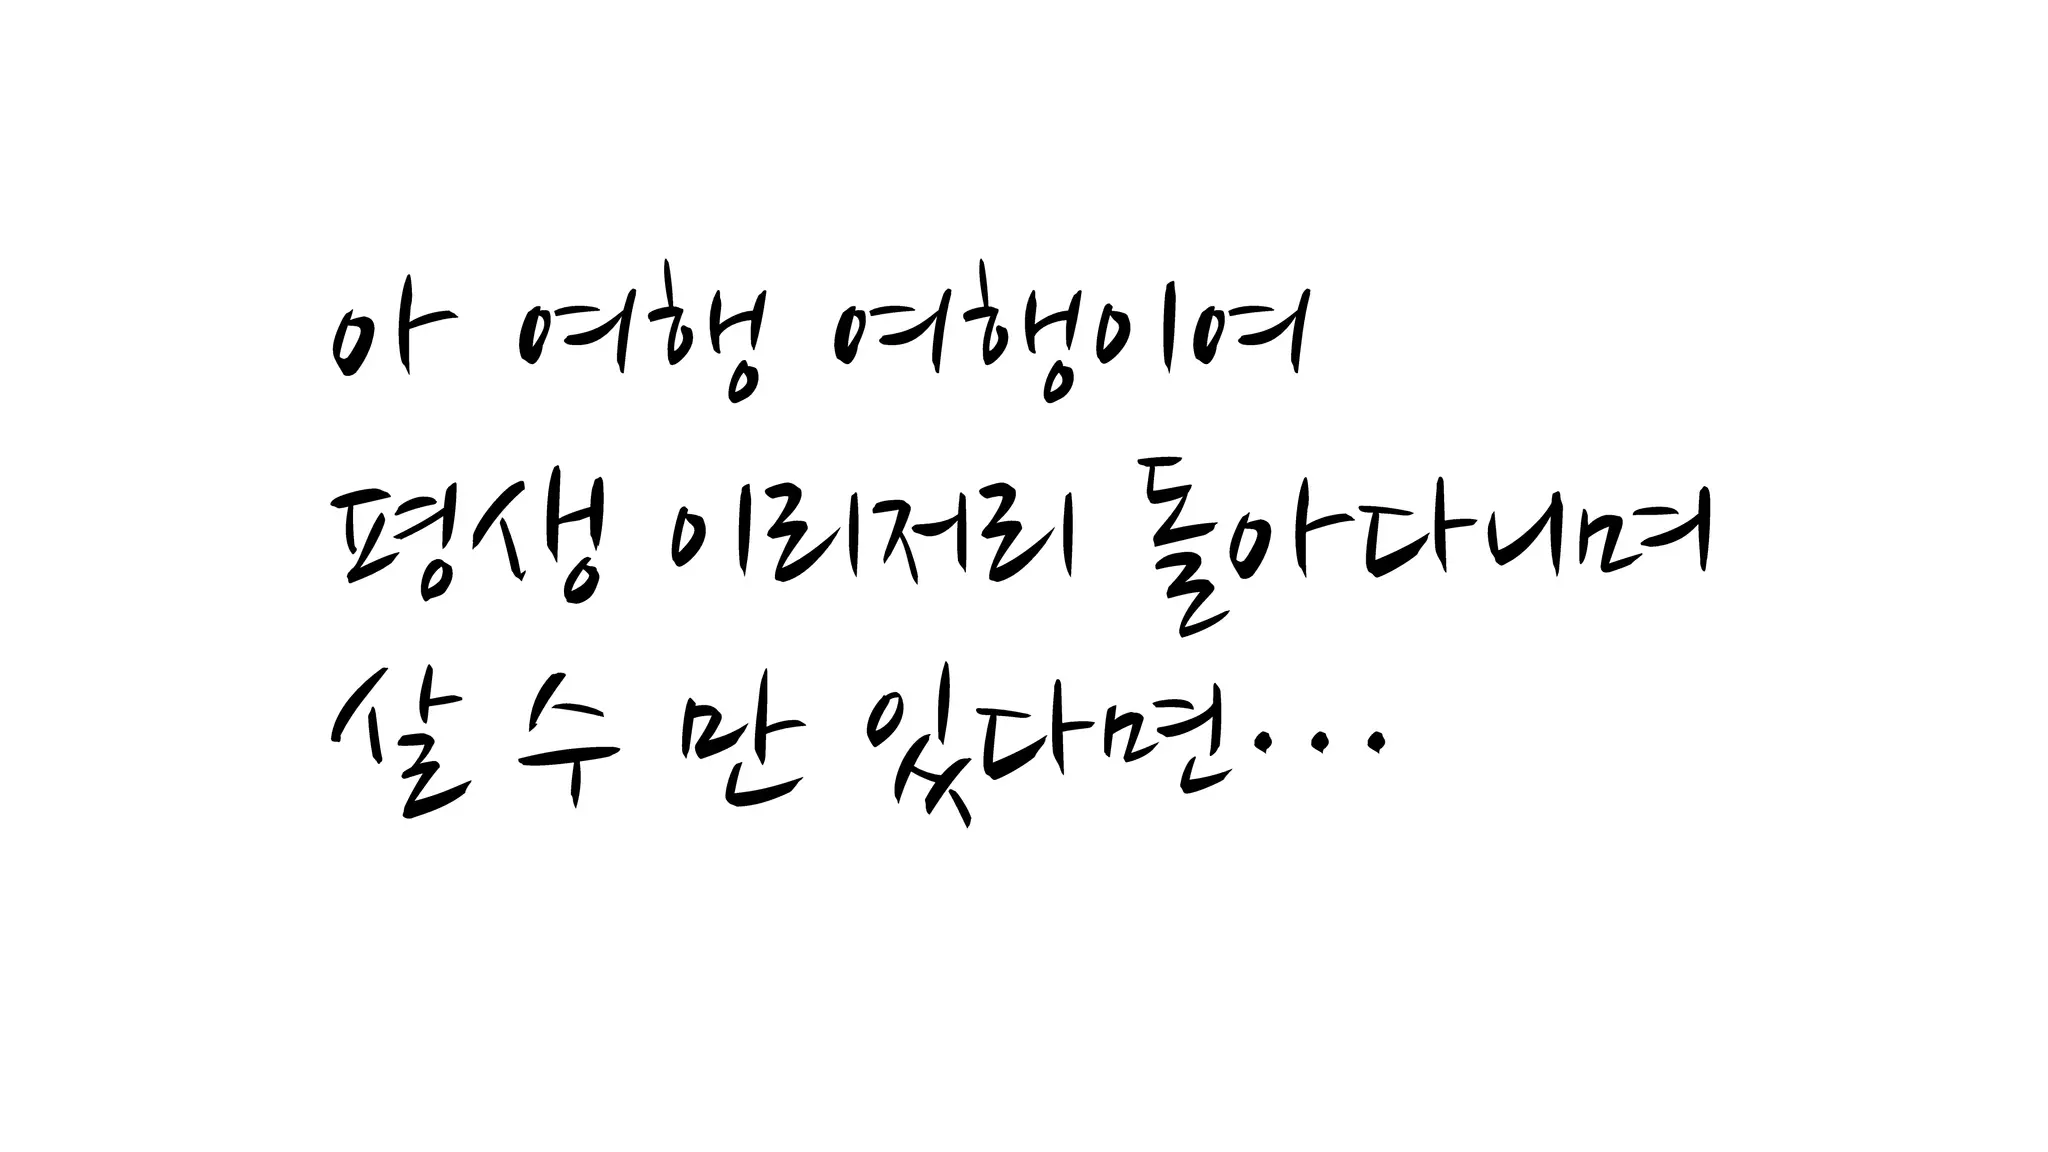 아 여행 여행이여
평생 이리저리 돌아다니며
살 수 만 있다면...